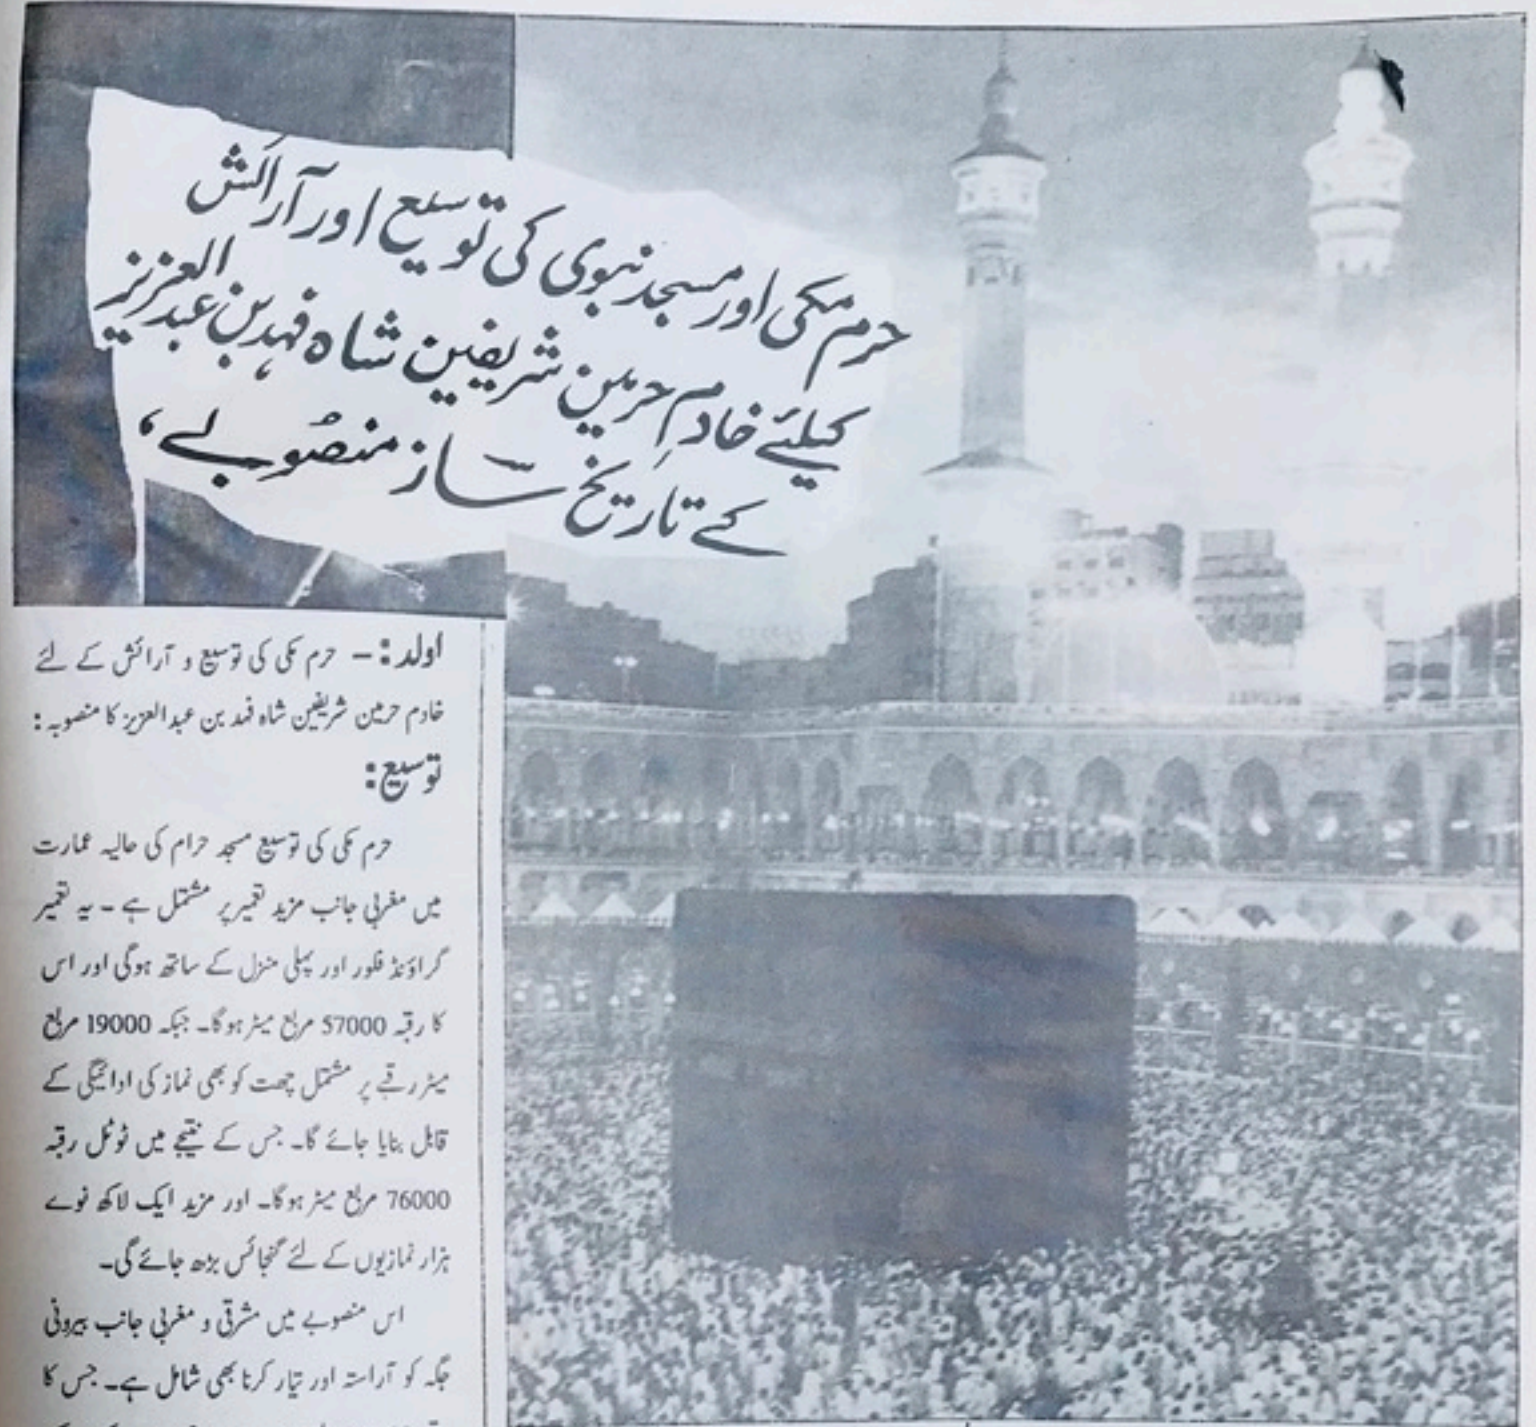 حرم مکی اور مسجد نبوی کی توسیع اور آرائش
کیلئے خادمِ حرمین شریفین شاہ فہد بن عبدالعزیز
کے تاریخ ساز منصوبے،
اولد:- حرم مکی کی توسیع و آرائش کے لئے
خادم حرمین شریفین شاہ فہد بن عبدالعزیز کا منصوبہ:
توسیع:
حرم مکی کی توسیع مسجد حرام کی حالیہ عمارت
میں مغربی جانب مزید تعمیر پر مشتمل ہے ۔ یہ تعمیر
گراؤنڈ فلور اور پہلی منزل کے ساتھ ہوگی اور اس
کا رقبہ 57000 مربع میٹر ہوگا۔ جبکہ 19000 مربع
میٹر رقبے پر مشتمل چھت کو بھی نماز کی ادائیگی کے
قابل بنایا جائے گا۔ جس کے نتیجے میں ٹوٹل رقبہ
76000 مربع میٹر ہوگا۔ اور مزید ایک لاکھ نوے
ہزار نمازیوں کے لئے گنجائس بڑھ جائے گی۔
اس منصوبے میں مشرقی و مغربی جانب بیرونی
جگہ کو آراستہ اور تیار کرنا بھی شامل ہے۔ جس کا